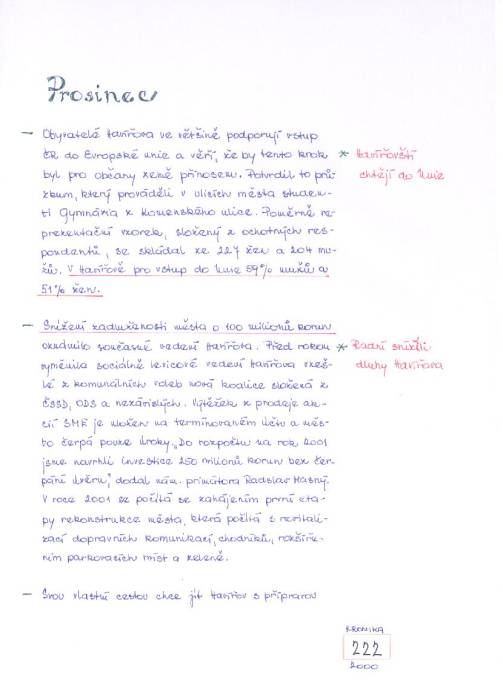 Prosinec
- Obyvatelé Havířova ve většině podporují vstup
ČR do Evropské unie a věří, že by tento krok
byl pro občany země přínosem. Potvrdil to prů-
zkum, který prováděli v ulicích města studen-
ti Gymnázia z Komenského ulice. Poměrně re-
prezentační vzorek, složený z ochotných res-
pondentů, se skládal ze 227 žen a 204 mu-
žů. V Havířově pro vstup do Unie 59% mužů a
51% žen.
* Havířovští
chtějí do Unie
- Snížení zadluženosti města o 100 milionů korun
oznámilo současné vedení Havířova. Před rokem
vyměnila sociálně levicové vedení Havířova vzeš-
lé z komunálních voleb nová koalice složená z
ČSSD, ODS a nezávislých. Výtěžek z prodeje ak-
cií SME je uložen na termínovaném účtu a měs-
to čerpá pouze úroky. „Do rozpočtu na rok 2001
jsme navrhli investice 250 milionů korun bez čer-
pání úvěru," dodal nám. primátora Radslav Masný.
V roce 2001 se počítá se zahájením první eta-
py rekonstrukce města, která počítá s revitali-
zací dopravních komunikací, chodníků, rozšíře-
ním parkovacích míst a zeleně.
* Radní snížili
dluhy Havířova
- Svou vlastní cestou chce jít Havířov s přípravou
KRONIKA
222
2000